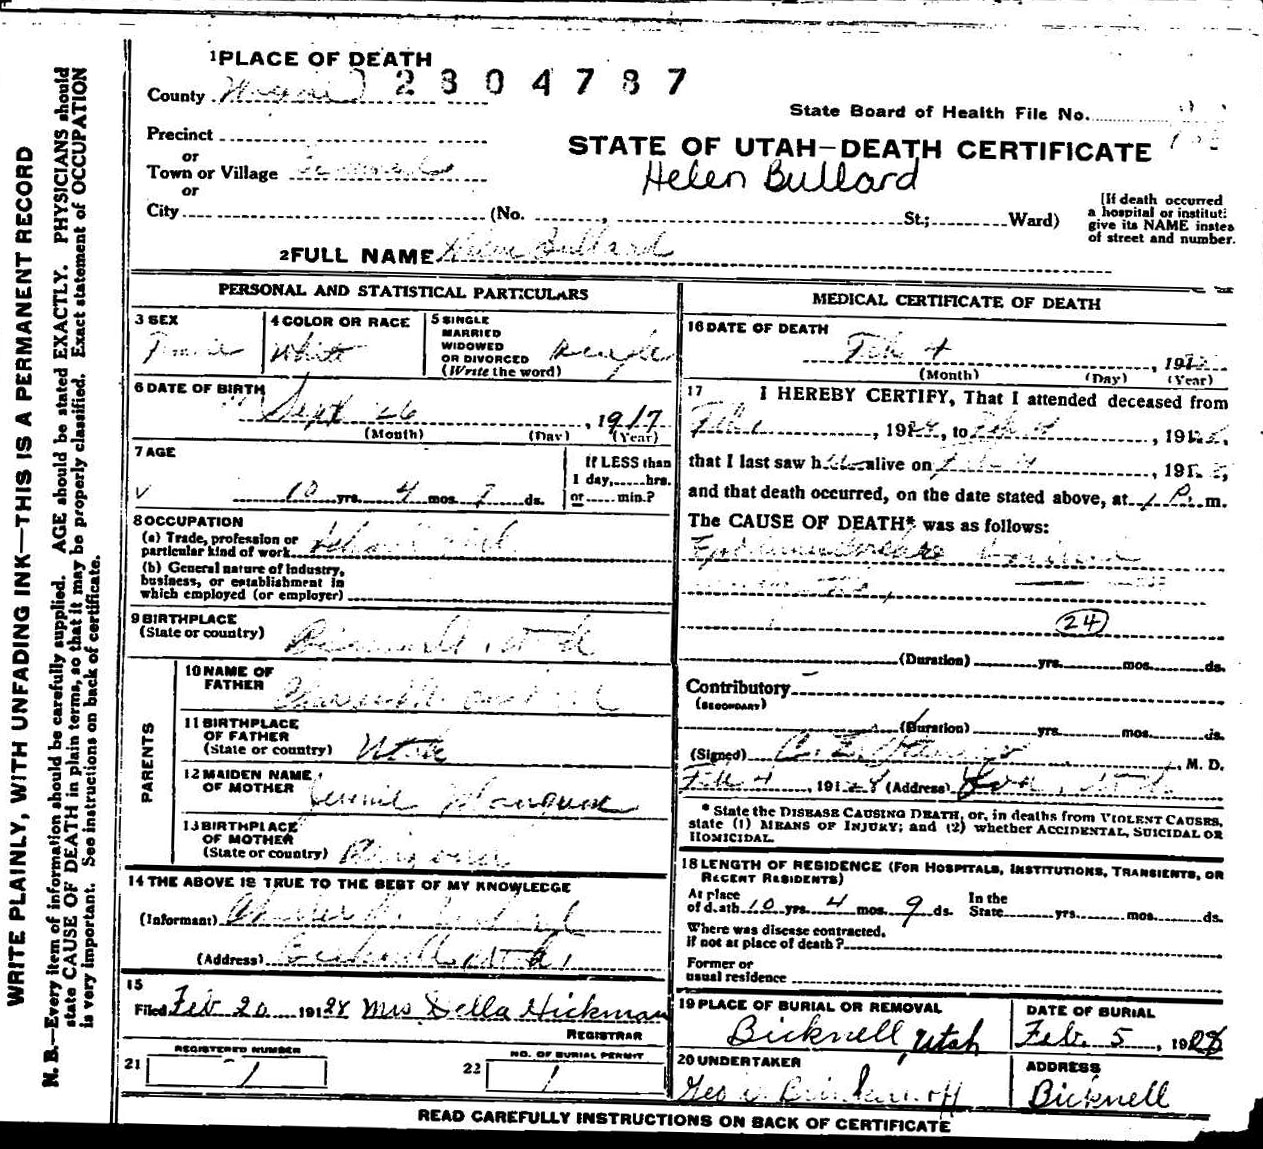 1 PLACE OF DEATH
County Wayne 2304787
State Board of Health File No.
Precinct
or
STATE OF UTAH—DEATH CERTIFICATE
Town or Village
Helen Bullard
or
City (No. , St.; Ward)
(If death occurred
a hospital or instituti
give its NAME instea
of street and number.
2 FULL NAME Helen Bullard
PERSONAL AND STATISTICAL PARTICULARS
3 SEX
Female
4 COLOR OR RACE
White
5 SINGLE
MARRIED
WIDOWED
OR DIVORCED
(Write the word)
Single
6 DATE OF BIRTH
Sept 26, 1917
(Month) (Day) (Year)
7 AGE
10 yrs. 4 mos. 9 ds.
If LESS than
1 day, hrs.
or min.?
8 OCCUPATION
(a) Trade, profession or
particular kind of work School girl
(b) General nature of industry,
business, or establishment in
which employed (or employer)
9 BIRTHPLACE
(State or country) Bicknell, Utah
PARENTS
10 NAME OF
FATHER
11 BIRTHPLACE
OF FATHER
(State or country) Utah
12 MAIDEN NAME
OF MOTHER Jennie
13 BIRTHPLACE
OF MOTHER
(State or country) Arizona
14 THE ABOVE IS TRUE TO THE BEST OF MY KNOWLEDGE
(Informant) Bullard
(Address) Bicknell, Utah
15
Filed Feb 20 1928 Mrs Della Hickman
REGISTRAR
21 REGISTERED NUMBER
1
22 NO. OF BURIAL PERMIT
1
MEDICAL CERTIFICATE OF DEATH
16 DATE OF DEATH
Feb 4, 19
(Month) (Day) (Year)
17 I HEREBY CERTIFY, That I attended deceased from
Feb 1, 1928, to Feb 4, 192
that I last saw h alive on Feb 4, 19
and that death occurred, on the date stated above, at 1 P. m.
The CAUSE OF DEATH* was as follows:
24
(Duration) yrs. mos. ds.
Contributory
(SECONDARY)
(Duration) yrs. mos. ds.
(Signed) M. D.
Feb 4, 1928 (Address) Utah
* State the DISEASE CAUSING DEATH, or, in deaths from VIOLENT CAUSES,
state (1) MEANS OF INJURY; and (2) whether ACCIDENTAL, SUICIDAL OR
HOMICIDAL.
18 LENGTH OF RESIDENCE (FOR HOSPITALS, INSTITUTIONS, TRANSIENTS, OR
RECENT RESIDENTS)
At place
of death 10 yrs. 4 mos. 9 ds.
In the
State yrs. mos. ds.
Where was disease contracted,
if not at place of death?
Former or
usual residence
19 PLACE OF BURIAL OR REMOVAL
Bicknell, Utah
DATE OF BURIAL
Feb. 5, 1928
20 UNDERTAKER
Geo
ADDRESS
Bicknell
READ CAREFULLY INSTRUCTIONS ON BACK OF CERTIFICATE
WRITE PLAINLY, WITH UNFADING INK—THIS IS A PERMANENT RECORD
N. B.—Every item of information should be carefully supplied. AGE should be stated EXACTLY. PHYSICIANS should
state CAUSE OF DEATH in plain terms, so that it may be properly classified. Exact statement of OCCUPATION
is very important. See instructions on back of certificate.